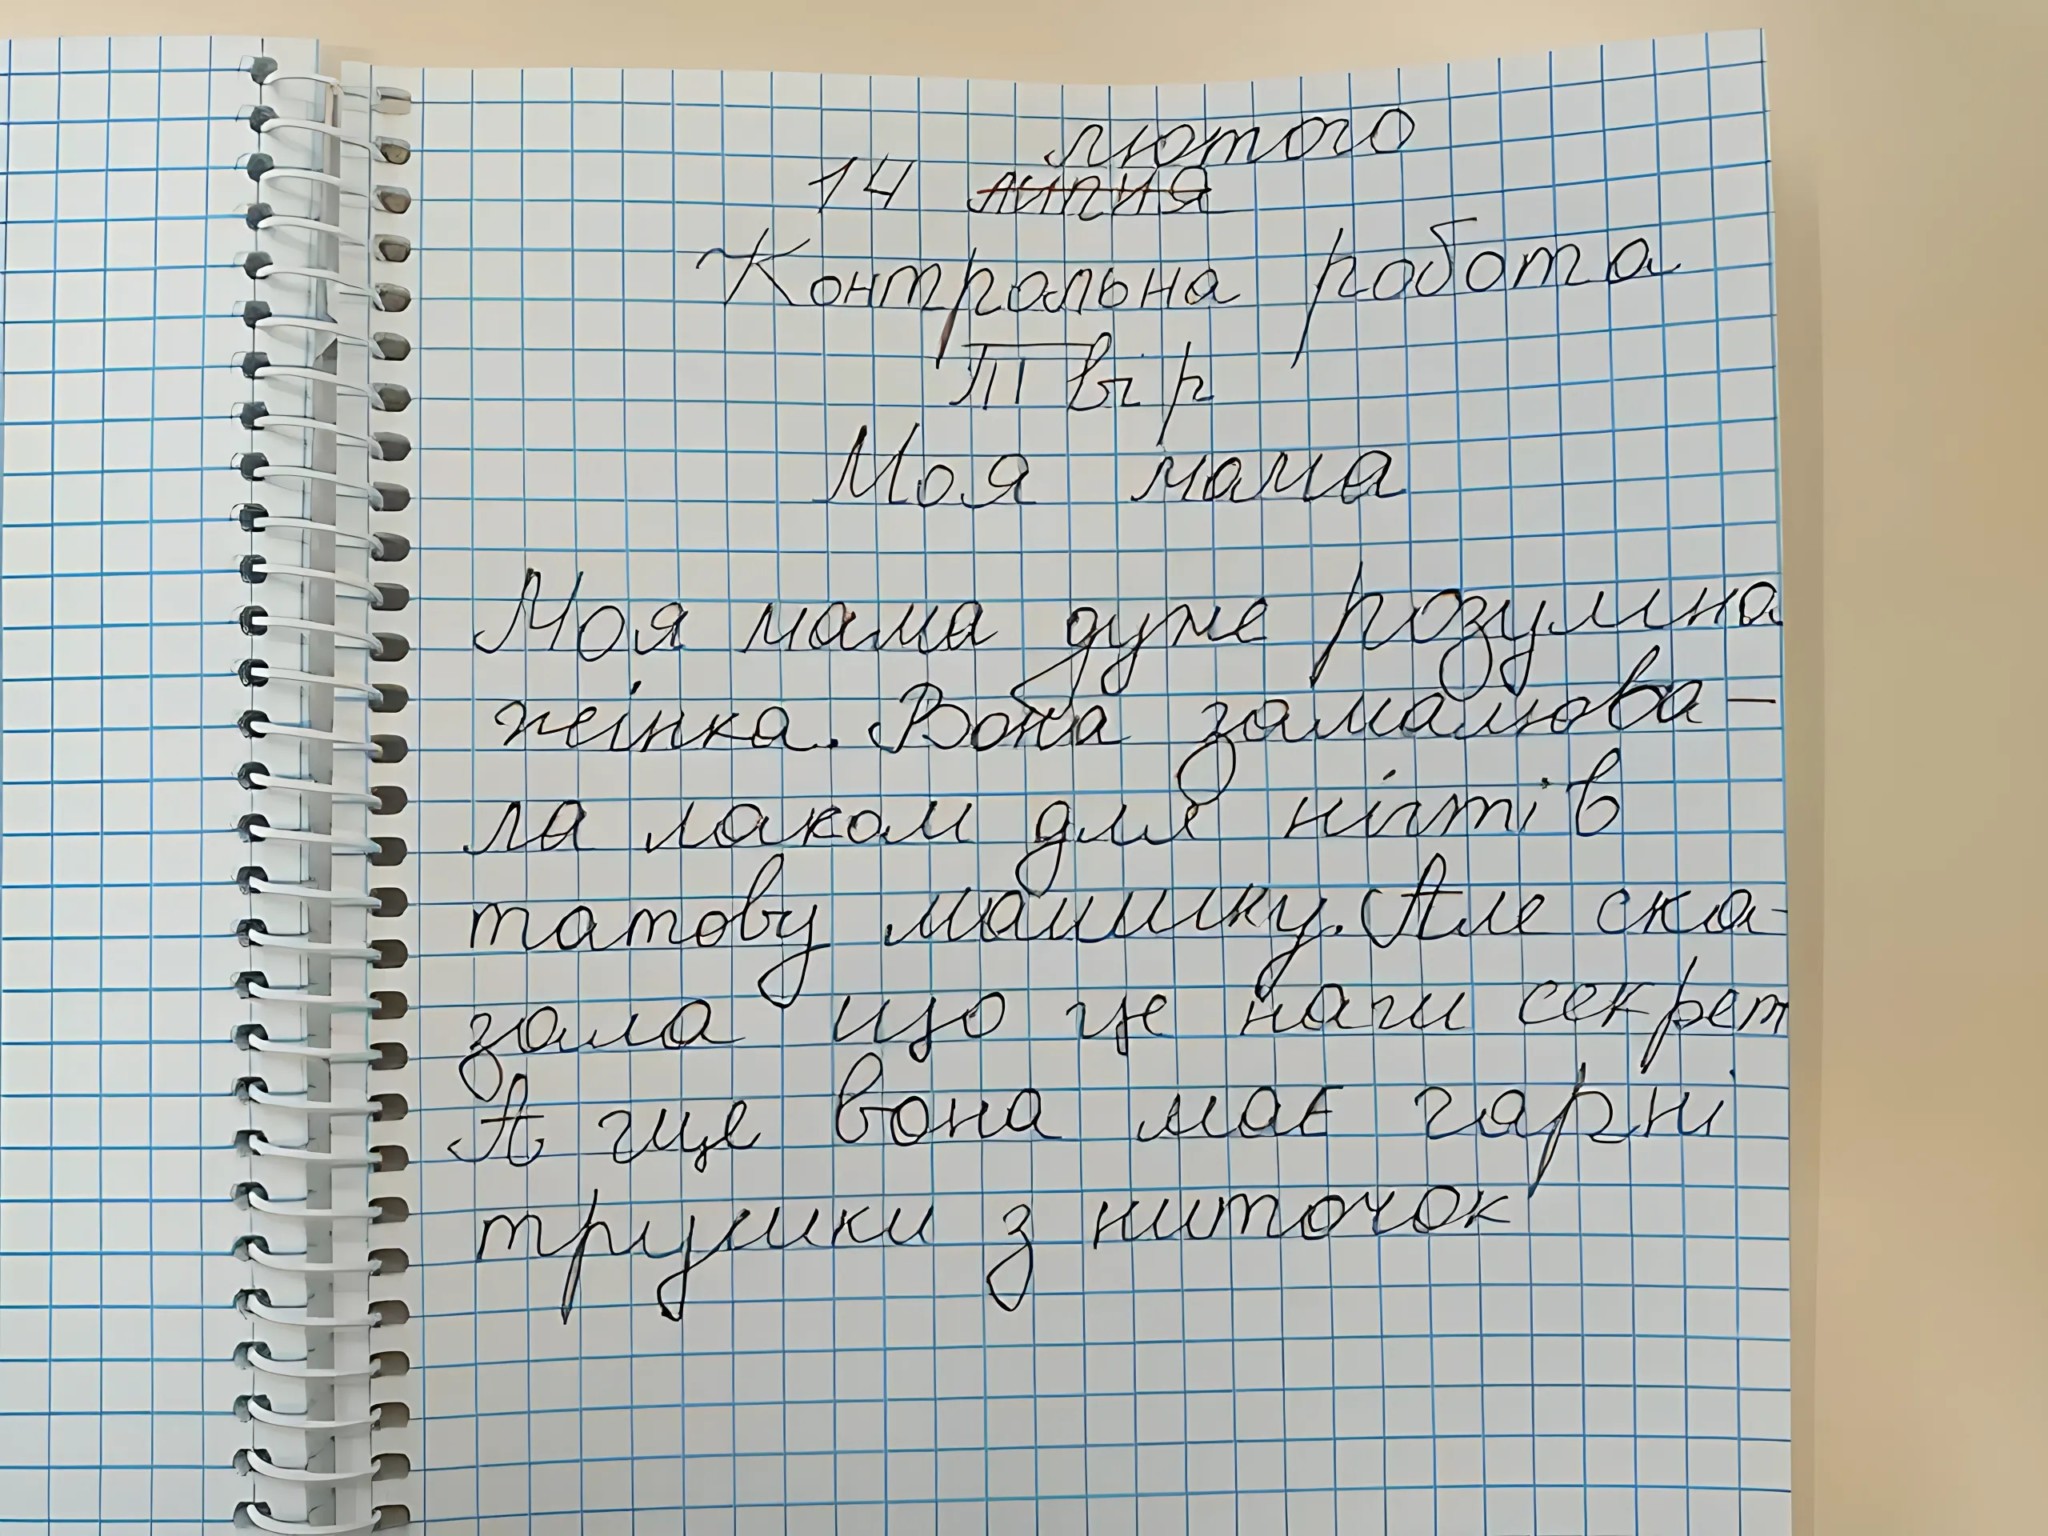 лютого
14 липня
Контрольна робота
Твір
Моя мама
Моя мама дуже розумна
жінка. Вона замалюва-
ла лаком для нігтів
татову машину. Але ска-
зала що це наш секрет
А ще вона має гарні
трусики з ниточок